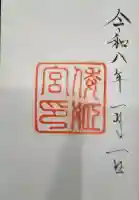 令和八年一月一日
倭姫
宮印